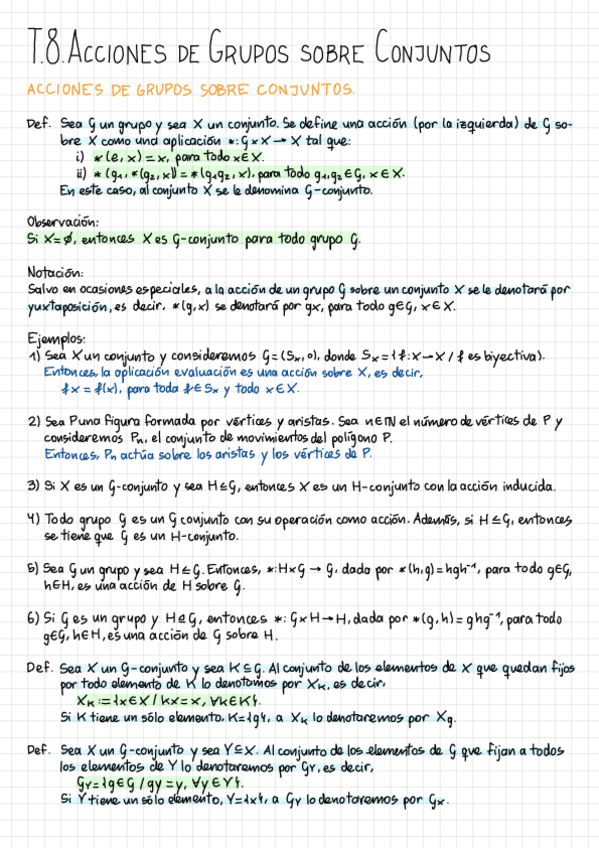 T.8. ACCIONES DE GRUPOS SOBRE CONJUNTOS
ACCIONES DE GRUPOS SOBRE CONJUNTOS.
Def. Sea G un grupo y sea X un conjunto. Se define una acción (por la izquierda) de G so-
bre X como una aplicación *: G×X → X tal que:
i) *(e, x) = x, para todo x∈X.
ii) *(g₁, *(g₂, x)) = *(g₁g₂, x), para todo g₁,g₂∈G, x∈X.
En este caso, al conjunto X se le denomina G-conjunto.
Observación:
Si X=∅, entonces X es G-conjunto para todo grupo G.
Notación:
Salvo en ocasiones especiales, a la acción de un grupo G sobre un conjunto X se le denotará por
yuxtaposición, es decir, *(g,x) se denotará por gx, para todo g∈G, x∈X.
Ejemplos:
1) Sea X un conjunto y consideremos G=(Sx,∘), donde Sx={f:X→X / f es biyectiva}.
Entonces, la aplicación evaluación es una acción sobre X, es decir,
fx = f(x), para toda f∈Sx y todo x∈X.
2) Sea P una figura formada por vértices y aristas. Sea n∈ℕ el número de vértices de P y
consideremos Pn, el conjunto de movimientos del polígono P.
Entonces, Pn actúa sobre las aristas y los vértices de P.
3) Si X es un G-conjunto y sea H≤G, entonces X es un H-conjunto con la acción inducida.
4) Todo grupo G es un G conjunto con su operación como acción. Además, si H≤G, entonces
se tiene que G es un H-conjunto.
5) Sea G un grupo y sea H≤G. Entonces, *:H×G → G, dada por *(h,g)=hgh⁻¹, para todo g∈G,
h∈H, es una acción de H sobre G.
6) Si G es un grupo y H⊴G, entonces *: G×H→H, dada por *(g,h)=ghg⁻¹, para todo
g∈G, h∈H, es una acción de G sobre H.
Def. Sea X un G-conjunto y sea K⊆G. Al conjunto de los elementos de X que quedan fijos
por todo elemento de K lo denotamos por X_K, es decir,
X_K := {x∈X / kx=x, ∀k∈K}.
Si K tiene un sólo elemento, K={g}, a X_K lo denotaremos por X_g.
Def. Sea X un G-conjunto y sea Y⊆X. Al conjunto de los elementos de G que fijan a todos
los elementos de Y lo denotaremos por G_Y, es decir,
G_Y={g∈G / gy=y, ∀y∈Y}.
Si Y tiene un sólo elemento, Y={x}, a G_Y lo denotaremos por G_x.